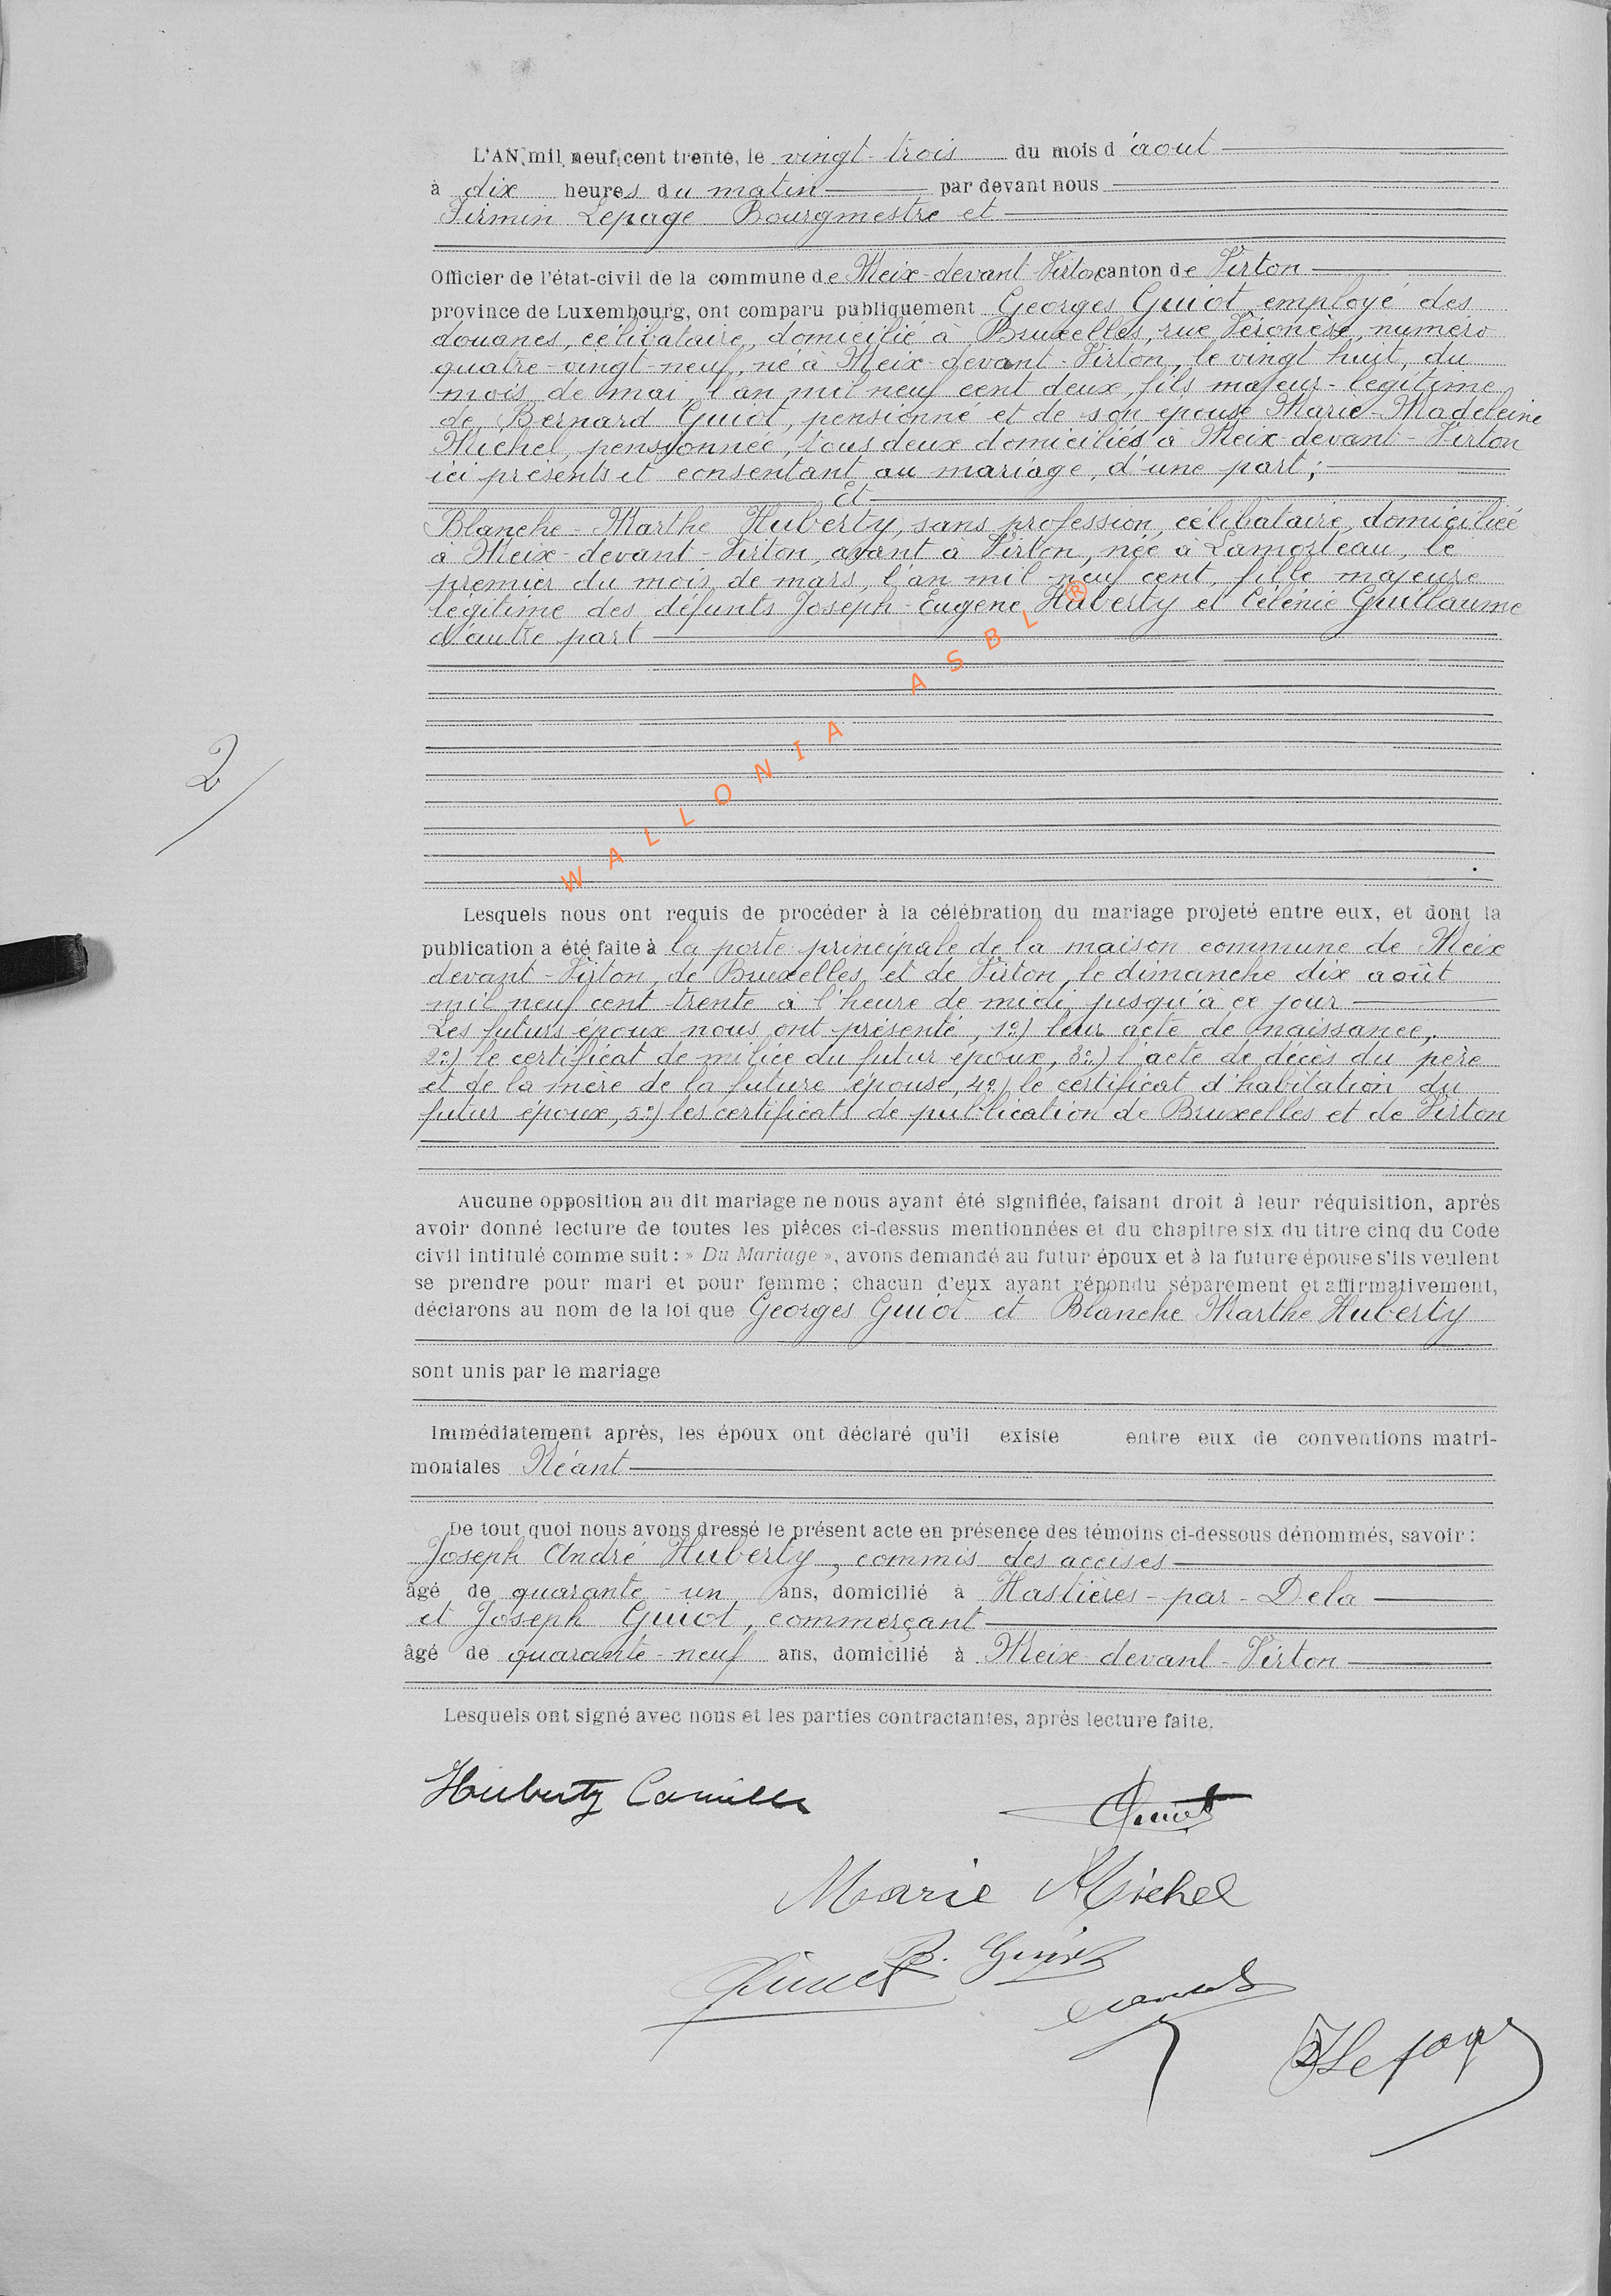 L'AN mil neuf cent trente, le vingt-trois du mois d'aout
à dix heures du matin par devant nous
Firmin Lepage Bourgmestre et
Officier de l'état-civil de la commune de Meix-devant-Virton canton de Virton
province de Luxembourg, ont comparu publiquement Georges Guiot employé des
douanes, célibataire, domicilié à Bruxelles, rue Véronèse, numéro
quatre-vingt-neuf, né à Meix-devant-Virton, le vingt huit, du
mois de mai, l'an mil neuf cent deux, fils majeur-légitime
de Bernard Guiot, pensionné et de son épouse Marie-Madeleine
Michel, pensionnée, tous deux domiciliés à Meix-devant-Virton
ici présents et consentant au mariage, d'une part;
Et
Blanche-Marthe Huberty, sans profession, célibataire, domiciliée
à Meix-devant-Virton, avant à Virton, née à Lamorteau, le
premier du mois de mars, l'an mil neuf cent, fille majeure
légitime des défunts Joseph-Eugène Huberty et Célénie Guillaume
d'autre part
WALLONIA ASBL ®
2
Lesquels nous ont requis de procéder à la célébration du mariage projeté entre eux, et dont la
publication a été faite à la porte principale de la maison commune de Meix
devant-Virton, de Bruxelles et de Virton, le dimanche dix août
mil neuf cent trente à l'heure de midi jusqu'à ce jour
Les futurs époux nous ont présenté, 1º) leur acte de naissance,
2º) le certificat de milice du futur époux, 3º) l'acte de décès du père
et de la mère de la future épouse, 4º) le certificat d'habitation du
futur époux, 5º) les certificats de publication de Bruxelles et de Virton
Aucune opposition au dit mariage ne nous ayant été signifiée, faisant droit à leur réquisition, après
avoir donné lecture de toutes les pièces ci-dessus mentionnées et du chapitre six du titre cinq du Code
civil intitulé comme suit : » Du Mariage », avons demandé au futur époux et à la future épouse s'ils veulent
se prendre pour mari et pour femme ; chacun d'eux ayant répondu séparement et affirmativement,
déclarons au nom de la loi que Georges Guiot et Blanche Marthe Huberty
sont unis par le mariage
Immédiatement après, les époux ont déclaré qu'il existe entre eux de conventions matri-
moniales Néant
De tout quoi nous avons dressé le présent acte en présence des témoins ci-dessous dénommés, savoir :
Joseph André Huberty, commis des accises
âgé de quarante-un ans, domicilié à Hastières-par-Dela
et Joseph Guiot, commerçant
âgé de quarante-neuf ans, domicilié à Meix-devant-Virton
Lesquels ont signé avec nous et les parties contractantes, après lecture faite.
Huberty Camille
Guiot
Marie Michel
B. Guiot
Guiot
F Lepage